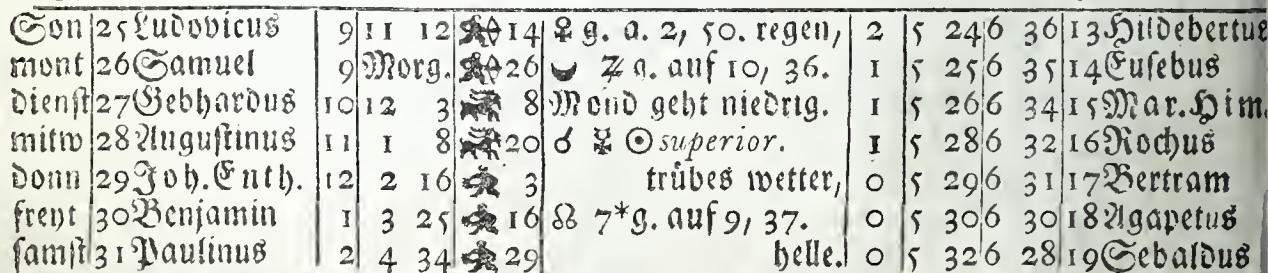 Son 25 Ludovicus 9 11 12 14 ♀ g. a. 2, 50. regen, 2 5 24 6 36 13 Hildebertus
mont 26 Samuel 9 Morg. 26 ♃ g. auf 10, 36. 1 5 25 6 35 14 Eusebus
dienst 27 Gebhardus 10 12 3 8 Mond geht niedrig. 1 5 26 6 34 15 Mar. Him.
mitw 28 Augustinus 11 1 8 20 ☌ ☿ ☉ superior. 1 5 28 6 32 16 Rochus
donn 29 Joh. Enth. 12 2 16 3 trübes wetter, 0 5 29 6 31 17 Bertram
freyt 30 Benjamin 1 3 25 16 ☊ 7*g. auf 9, 37. 0 5 30 6 30 18 Agapetus
samst 31 Paulinus 2 4 34 29 helle. 0 5 32 6 28 19 Sebaldus